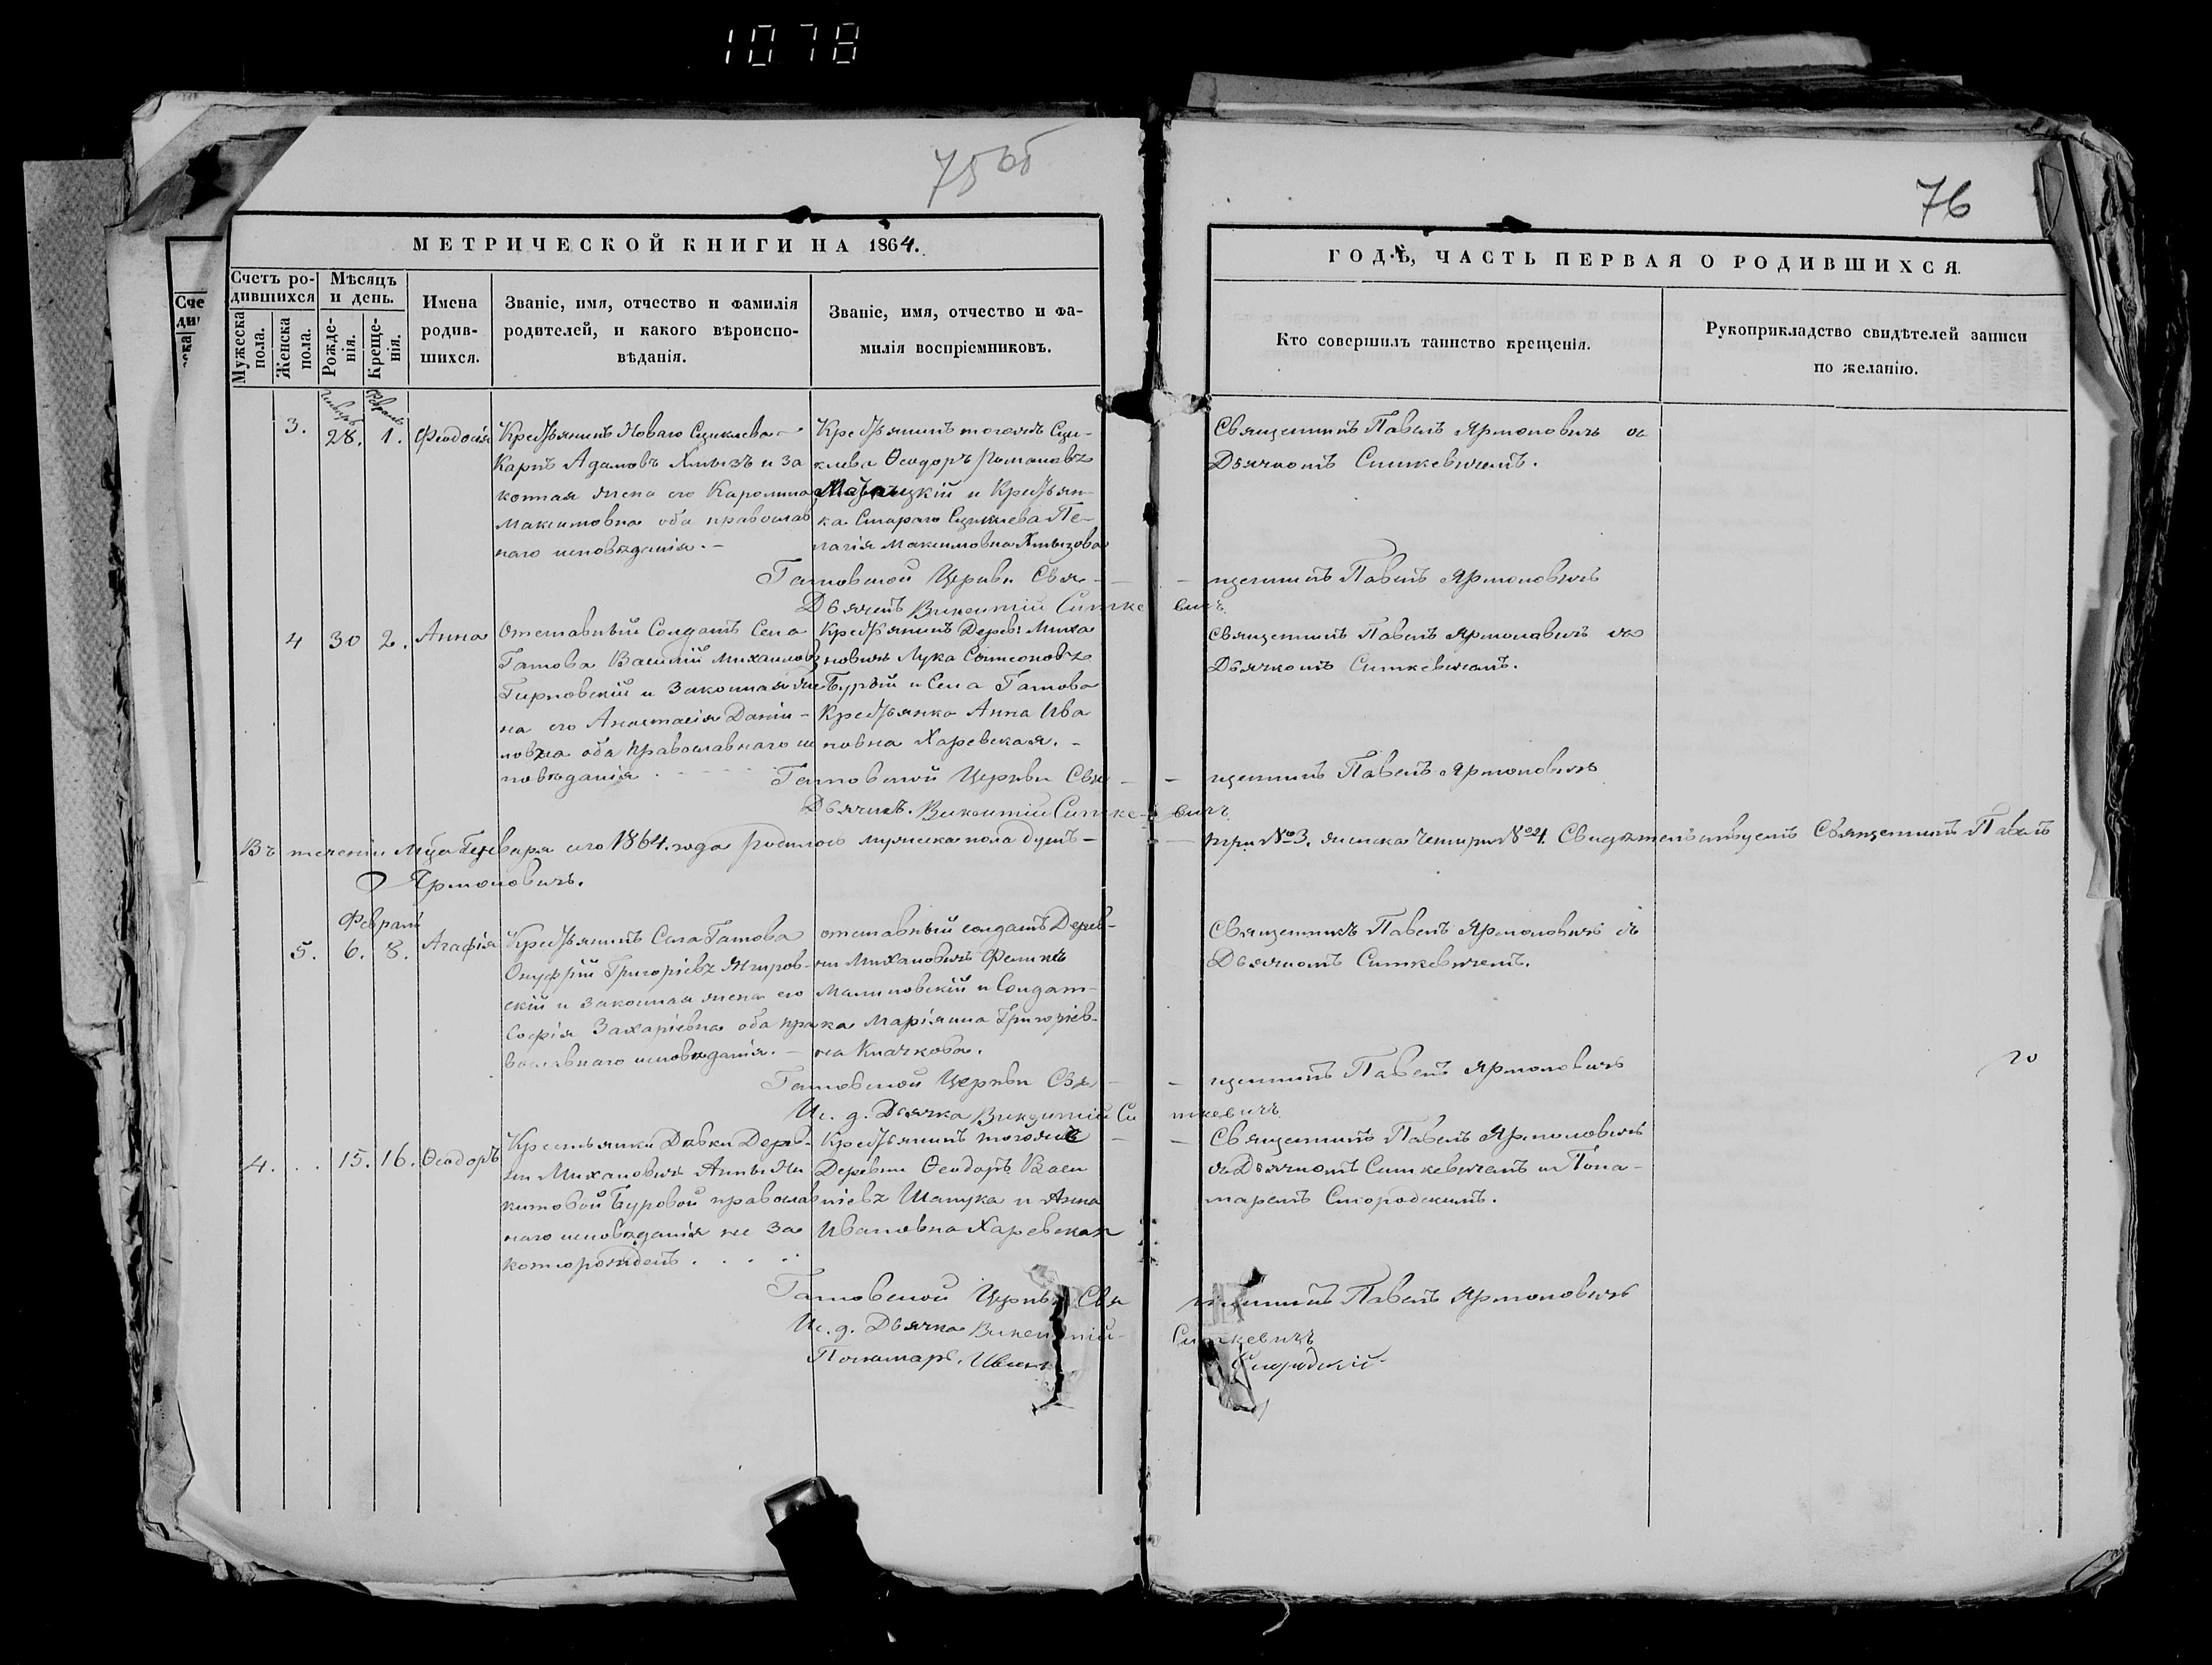 1078
75 об
76
МЕТРИЧЕСКОЙ КНИГИ НА 1864.
Счетъ родившихся
Мѣсяцъ и день.
Мужеска пола.
Женска пола.
Рожденія.
Крещенія.
Имена родившихся.
Званіе, имя, отчество и фамилія родителей, и какого вѣроисповѣданія.
Званіе, имя, отчество и фамилія воспріемниковъ.
ГОДѢ, ЧАСТЬ ПЕРВАЯ О РОДИВШИХСЯ.
Кто совершилъ таинство крещенія.
Рукоприкладство свидѣтелей записи по желанію.
Генварь
Февраль
3. 28. 1. Феодосія
Крестьянинъ Новаго Сциклева
Карпъ Адамовъ Хмызъ и за
конная жена его Каролина
Максимовна оба православ
наго исповѣданія. –
Крестьянинъ тогожъ Сци-
клева Ѳеодоръ Романовъ
и Крестьян-
ка Стараго Сциклева Пе-
лагія Максимовна Хмызова
Священникъ Павелъ Ярмоловичь съ
Дьячкомъ Ситкевичемъ.
Гатовской Церкви Свя- – щенникъ Павелъ Ярмоловичь
Дьячекъ Викентій Ситкевичъ
4 30 2. Анна
Отставный Солдатъ Села
Гатова Василій Михаиловъ
Гирповскій и Законная же
на его Анастасія Дании-
ловна оба Православнаго ис
повѣданія
Крестьянинъ Дерев: Миха
новичь Лука Самсоновъ
Бурый и Села Гатова
Крестьянка Анна Ива
новна Харевская. –
Священникъ Павелъ Ярмоловичь съ
Дьячкомъ Ситкевичемъ.
Гатовской Церкви Свя – – щенникъ Павелъ Ярмоловичь
Дьячекъ. Викентій Ситкевичъ
Въ теченіи Мѣца Генваря сего 1864. года родилось мужеска пола душъ – – три №3. женска четыри №4. Свидѣтельствуетъ Священникъ Павелъ
Ярмоловичь.
Февраль
5. 6. 8. Агафія
Крестьянинъ Села Гатова
Онуфрій Григоріевъ Жиров-
скій и Законная жена его
Софія Захаріевна оба пра
вославнаго исповѣданія. –
отставный солдатъ Дерев-
ни Михановичь Феликсъ
Малиновскій и Солдат-
ка Маріянна Григоріев-
на Клачкова.
Священникъ Павелъ Ярмоловичь съ
Дьячкомъ Ситкевичемъ.
Гатовской Церкви Свя – – щенникъ Павелъ Ярмоловичь
Ис. д. Дьячка Викентій Ситкевичъ
4. . . 15. 16. Ѳеодоръ
Крестьянки Дѣвки Дерев-
ни Михановичь Анны Ни
китовой Буровой православ
наго исповѣданія не за
конорожденъ . . . .
Крестьянинъ тогоже
Деревни Ѳеодоръ Васи
ліевъ Шапука и Анна
Ивановна Харевская
– – Священникъ Павелъ Ярмоловичь
съ Дьячкомъ Ситкевичемъ и Пона-
маремъ Смородскимъ.
Гатовской Церкви Свя щенникъ Павелъ Ярмоловичь
Ис. д. Дьячка Викентій Ситкевичъ
Пономарь. Смородскій